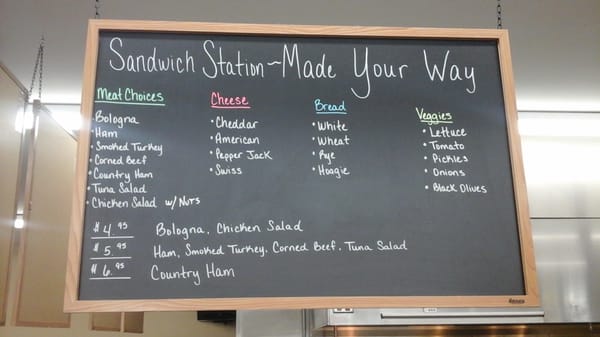 Sandwich Station ~ Made Your Way
Meat Choices
• Bologna
• Ham
• Smoked Turkey
• Corned Beef
• Country Ham
• Tuna Salad
• Chicken Salad w/ Nuts
Cheese
• Cheddar
• American
• Pepper Jack
• Swiss
Bread
• White
• Wheat
• Rye
• Hoagie
Veggies
• Lettuce
• Tomato
• Pickles
• Onions
• Black Olives
$4.95 Bologna, Chicken Salad
$5.95 Ham, Smoked Turkey, Corned Beef, Tuna Salad
$6.95 Country Ham